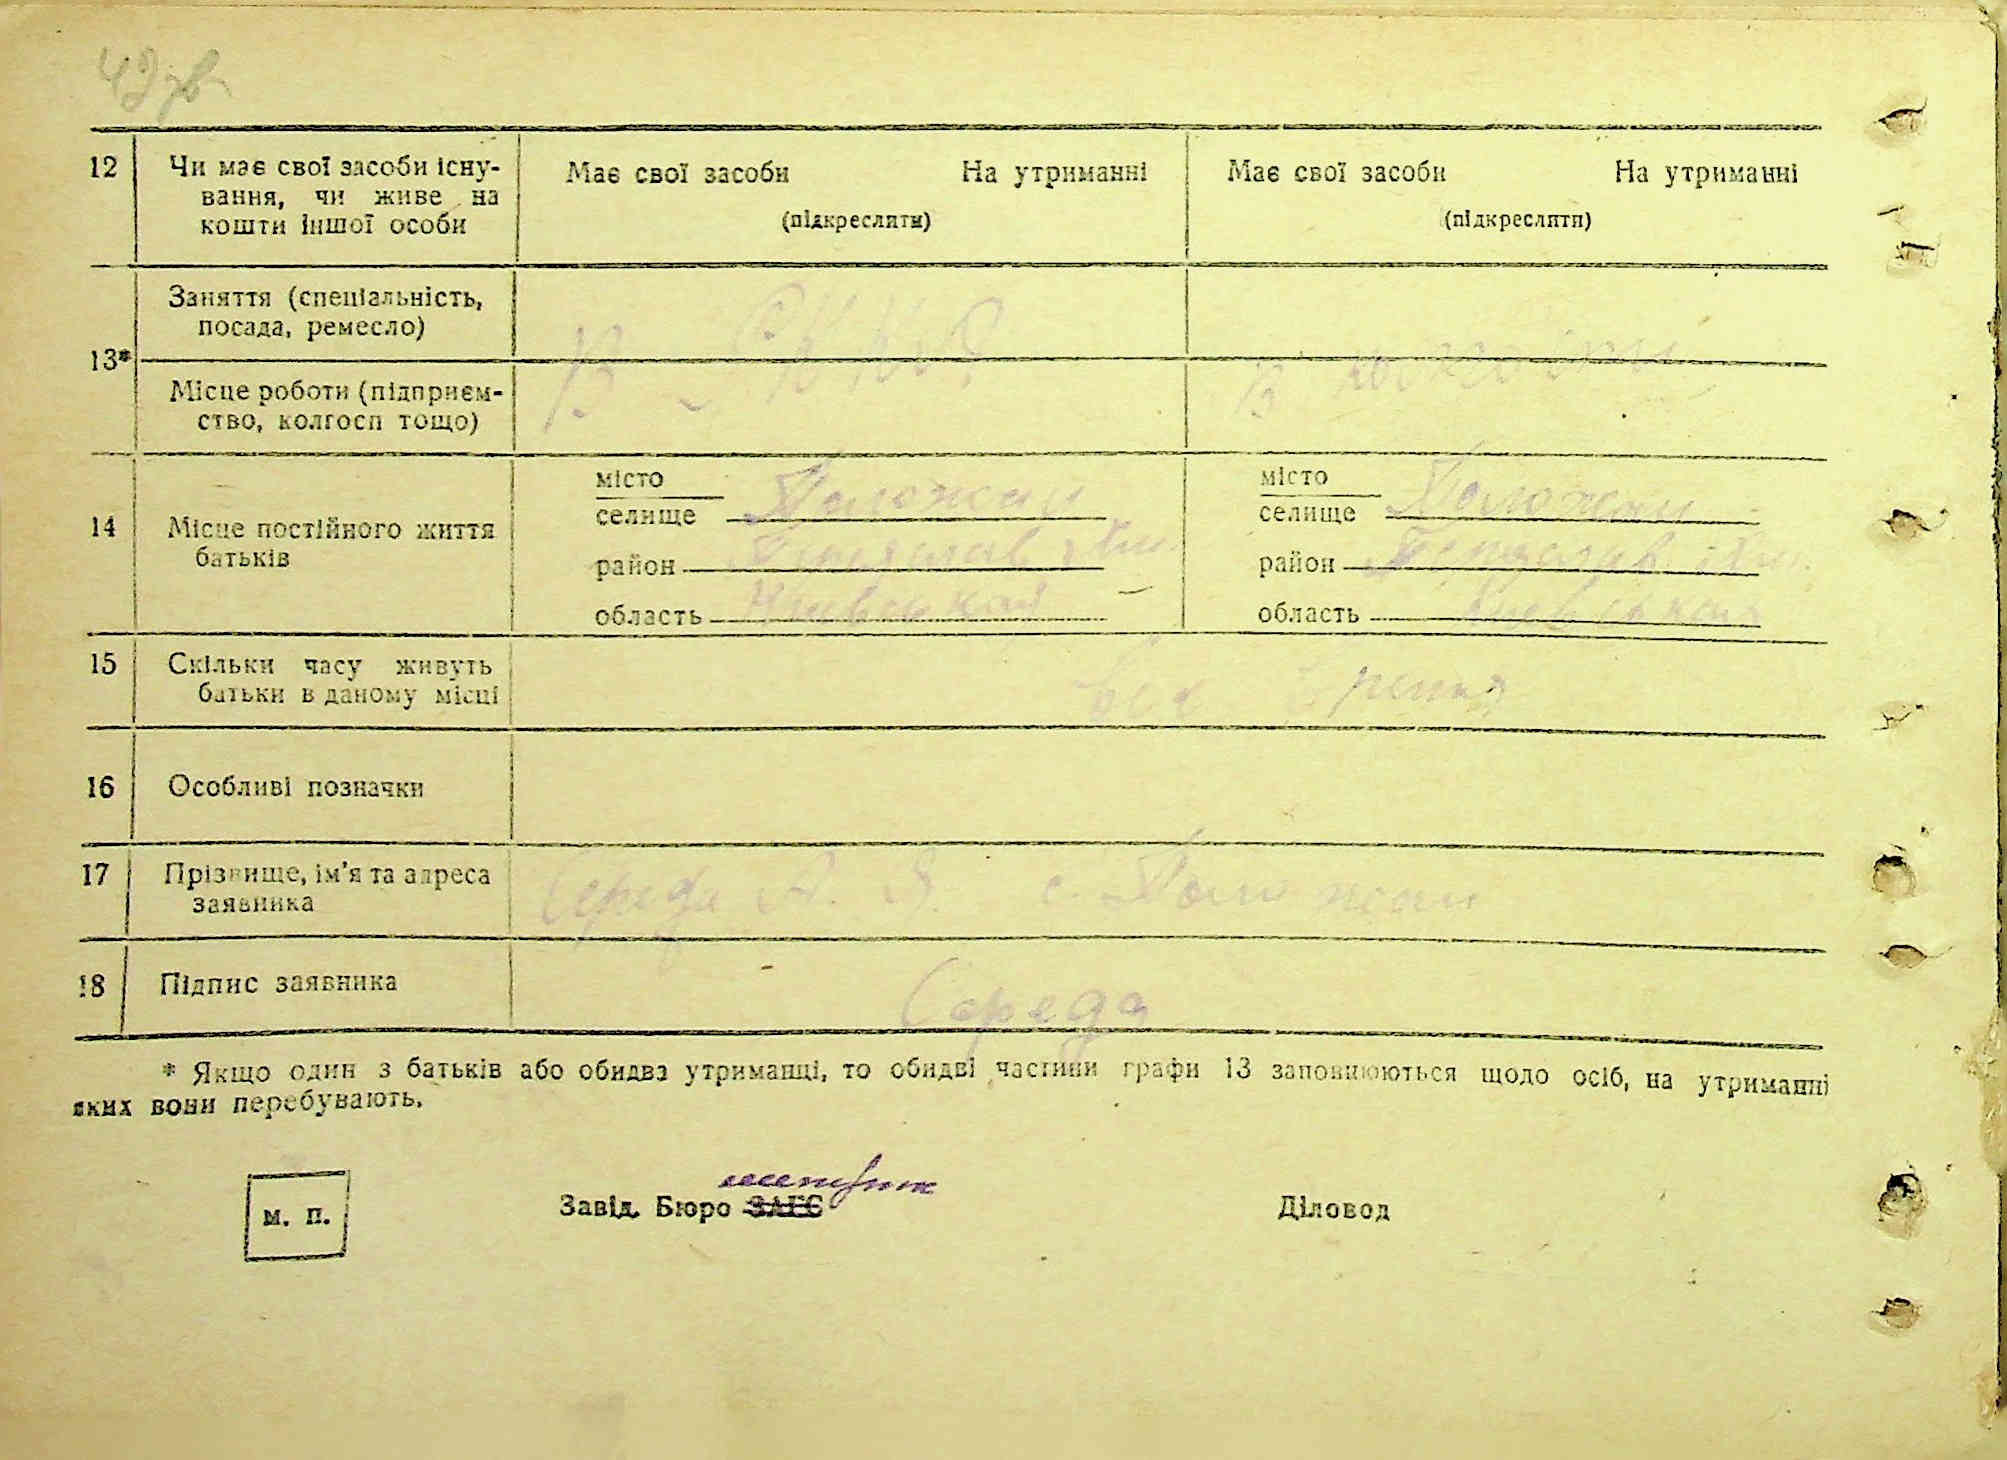 42 зв
12 Чи має свої засоби існу-
вання, чи живе на
кошти іншої особи
Має свої засоби На утриманні
(підкреслити)
Має свої засоби На утриманні
(підкреслити)
13*
Заняття (спеціальність,
посада, ремесло)
Місце роботи (підприєм-
ство, колгосп тощо)
В
В
14 Місце постійного життя
батьків
місто
селище Положаи
район
область
місто
селище Положаи
район
область
15 Скільки часу живуть
батьки в даному місці
16 Особливі позначки
17 Прізвище, ім'я та адреса
заявника
Середа А. Я. с. Положаи
18 Підпис заявника
Середа
* Якщо один з батьків або обидва утриманці, то обидві частини графи 13 заповнюються щодо осіб, на утриманні
яких вони перебувають.
м. п.
Завід. Бюро ЗАГС
Діловод